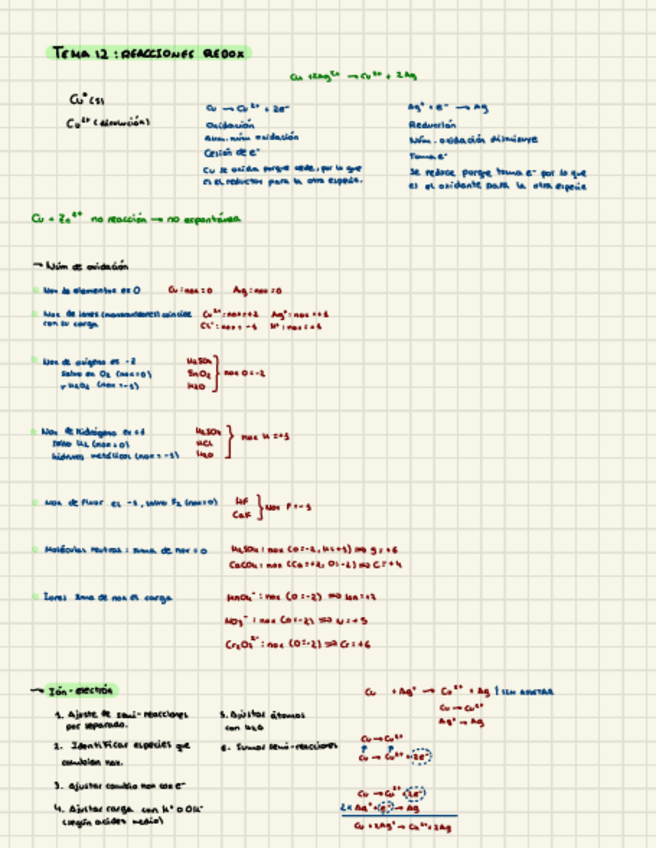 TEMA 12: REACCIONES REDOX
Cu + 2Ag⁺ → Cu²⁺ + 2Ag
Cu⁰ (s)
Cu²⁺ (disolución)
Cu → Cu²⁺ + 2e⁻
Oxidación
Aum. núm oxidación
Cesión de e⁻
Cu se oxida porque cede, por lo que
es el reductor para la otra especie.
Ag⁺ + e⁻ → Ag
Reducción
Núm. oxidación disminuye
Toma e⁻
Se reduce porque toma e⁻ por lo que
es el oxidante para la otra especie
Cu + Zn²⁺ no reacción → no espontánea
→ Núm de oxidación
Nox de elementos es 0 Cu: nox = 0 Ag: nox = 0
Nox de iones (monoatómicos) coincide
con su carga
Cu²⁺: nox = +2 Ag⁺: nox = +1
Cl⁻: nox = -1 H⁺: nox = +1
Nox de oxígeno es -2
salvo en O₂ (nox=0)
y H₂O₂ (nox=-1)
H₂SO₄
SnO₂
H₂O
nox O = -2
Nox de hidrógeno es +1
salvo H₂ (nox=0)
hidruros metálicos (nox = -1)
H₂SO₄
HCl
H₂O
nox H = +1
Nox de fluor es -1, salvo F₂ (nox=0)
HF
Nox F = -1
Moléculas neutras: suma de nox = 0
H₂SO₄: nox (O=-2, H=+1) ⇒ S = +6
CaCO₃: nox (Ca=+2, O=-2) ⇒ C = +4
Iones suma de nox el carga
MnO₄⁻: nox (O=-2) ⇒ Mn=+7
NO₃⁻: nox (O=-2) ⇒ N=+5
Cr₂O₇²⁻: nox (O=-2) ⇒ Cr=+6
→ Ión-electrón
1. Ajuste de semi-reacciones
por separado.
2. Identificar especies que
cambian nox.
3. Ajustar cambio nox con e⁻
4. Ajustar carga con H⁺ o OH⁻
(según acidez medio)
5. Ajustar átomos
con H₂O
6. Sumar semi-reacciones
Cu + Ag⁺ → Cu²⁺ + Ag SIN AJUSTAR
Cu → Cu²⁺
Ag⁺ → Ag
Cu → Cu²⁺
Cu → Cu²⁺ + 2e⁻
Cu → Cu²⁺ + 2e⁻
2x Ag⁺ + e⁻ → Ag
Cu + 2Ag⁺ → Cu²⁺ + 2Ag